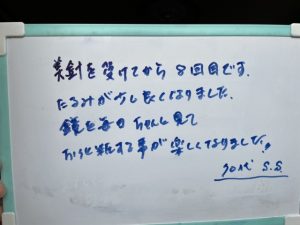 美針を受けてから8回目です。
たるみが少し良くなりました。
鏡を毎日ちゃんと見て
お化粧する事が楽しくなりました!
70代 S.S.